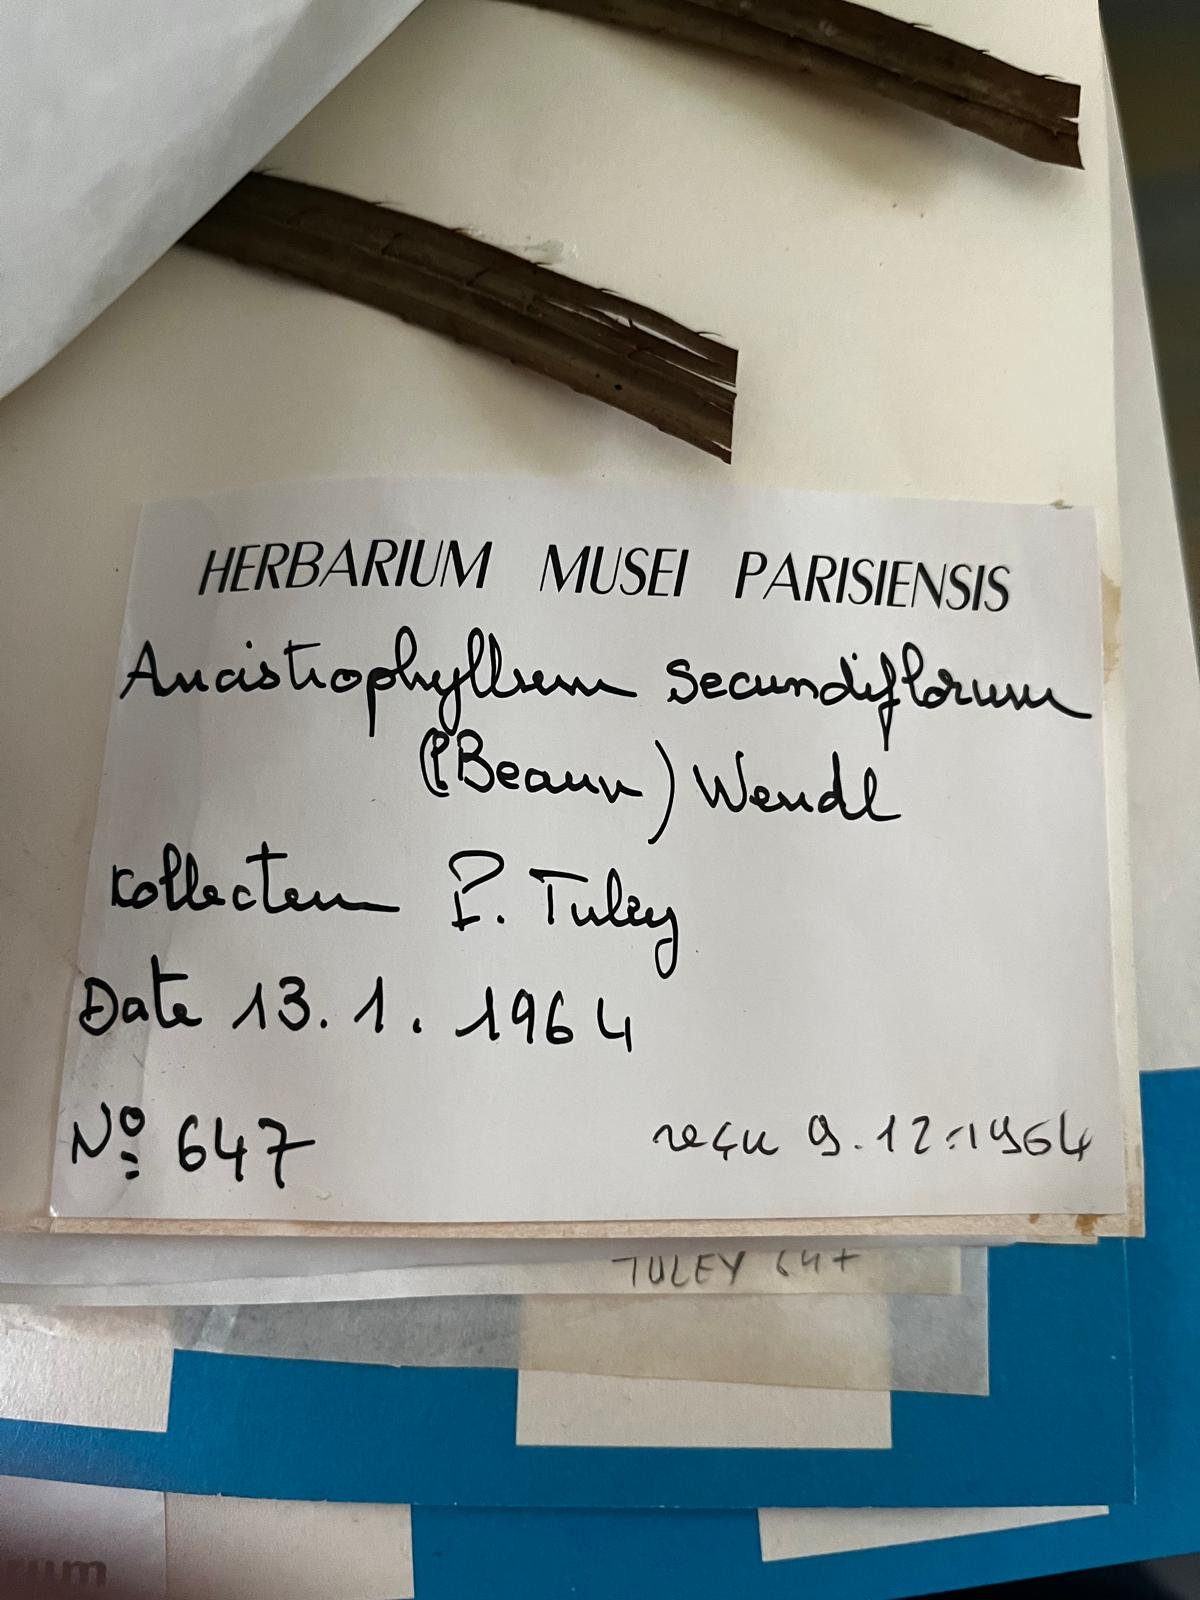 HERBARIUM MUSEI PARISIENSIS
Ancistrophyllum secundiflorum
(P Beauv) Wendl
Kollecteur P. Tuley
Date 13.1.1964
Nº 647
reçu 9.12.1964
TULEY 647
rum